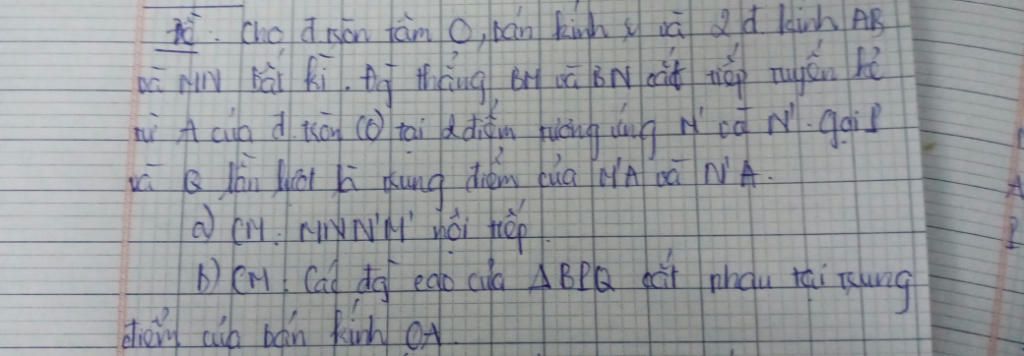 Đề. Cho đ tròn tâm O, bán kính và 2 đ kính AB
và MN bất kì. Đg thẳng BM và BN cắt tiếp tuyến kẻ
từ A của đ. tròn (O) tại 2 điểm tương ứng M' và N'. gọi P
và Q lần lượt là trung điểm của M'A và N'A.
a) CM: MNN'M' nội tiếp.
b) CM: Các đg cao của ∆BPQ cắt nhau tại trung
điểm của bán kính OA